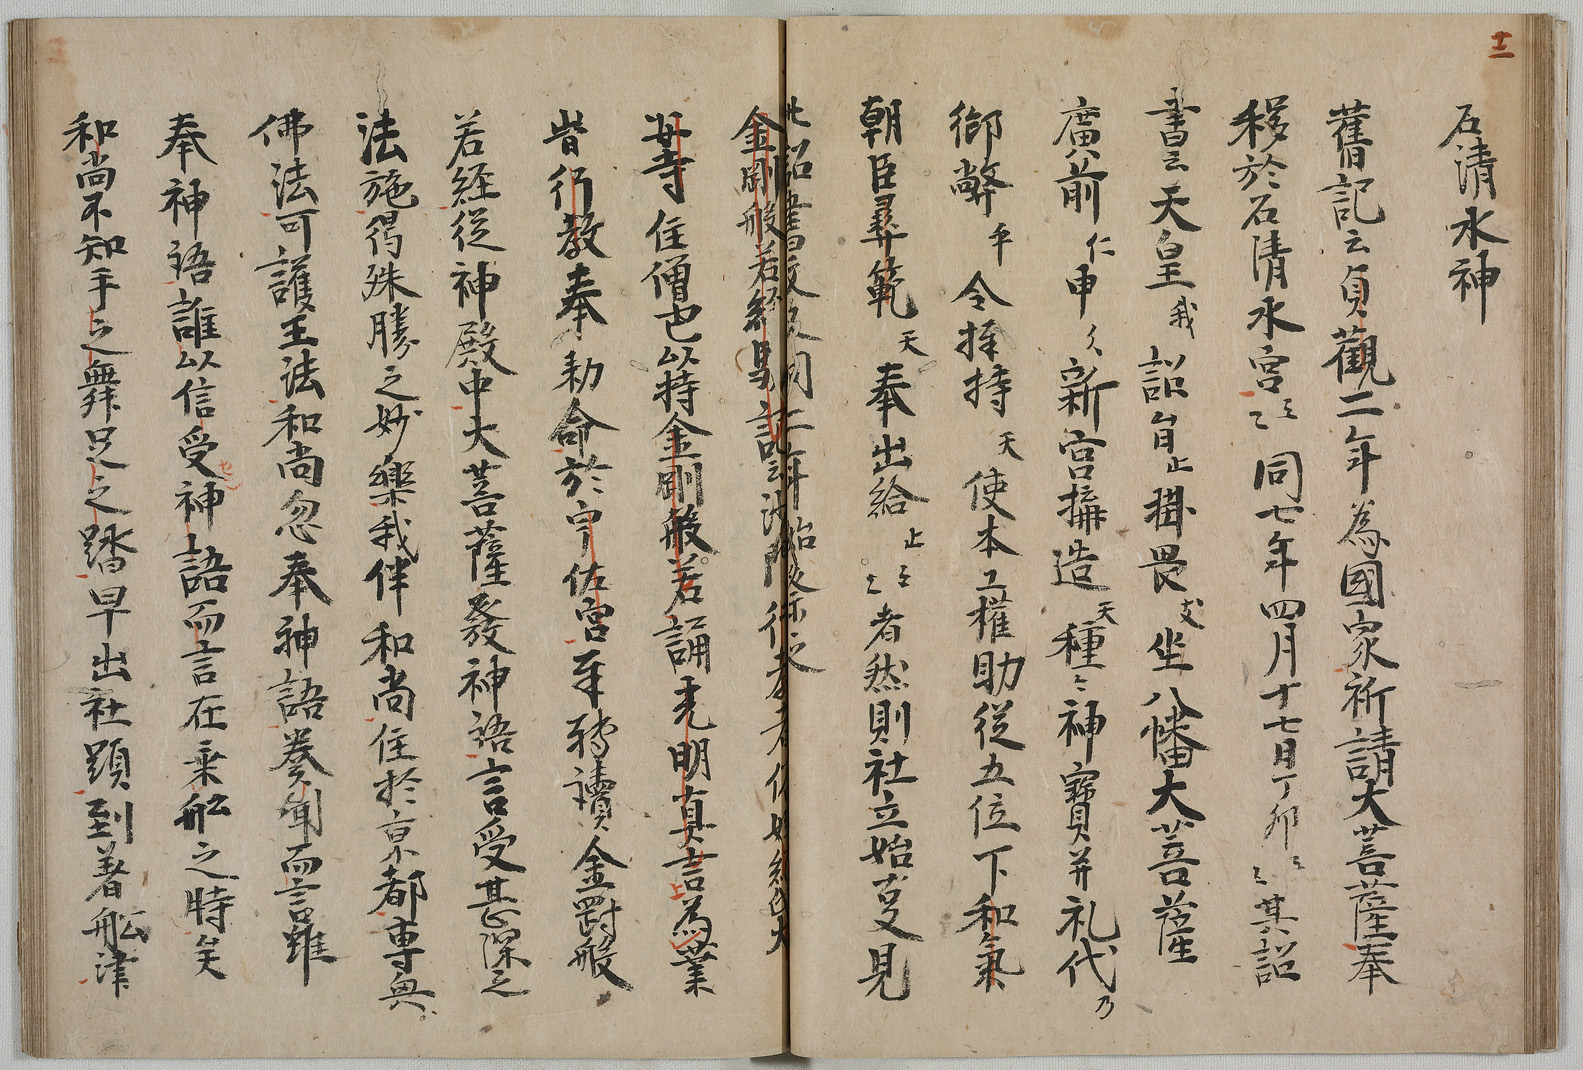 十二
石清水神
舊記云貞觀二年為國家祈請大菩薩奉
移於石清水宮云々同七年四月十七日丁卯云々其詔
書云天皇我詔旨止掛畏支坐八幡大菩薩
廣前仁申久新宮構造天種々神寶并礼代乃
御幣乎令捧持天使本工權助従五位下和氣
朝臣彛範天奉出給止云々者然則社立始夏見
此詔書
金剛般若經驗記云沙門行教者
寺住僧也以持金剛般若誦光明真言為業
皆行教奉勅命於宇佐宮年轉讀金剛般
若経従神殿中大菩薩發神語言受甚深之
法施得殊勝之妙樂我伴和尚住於京都専興
佛法可護王法和尚忽奉神語奏聞而言雖
奉神語誰以信受神語而言在乗舩之時矣
和尚不知手之舞足之踏早出社頭到着舩津